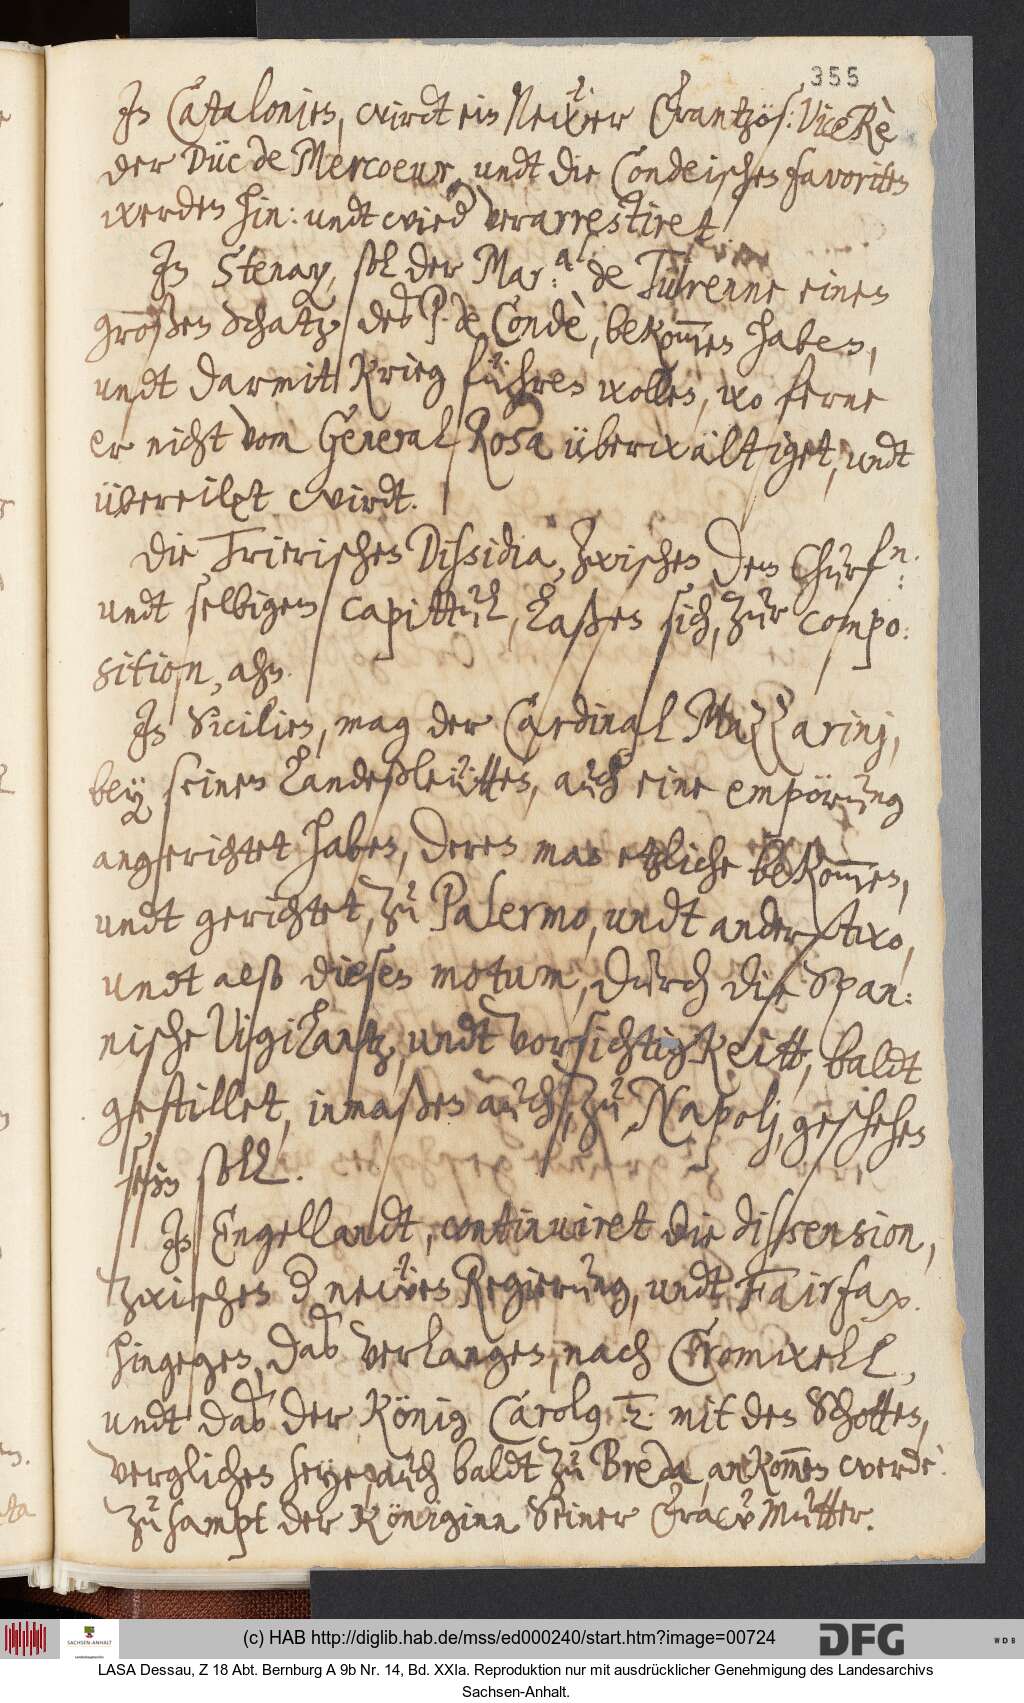 355
In Catalonien, wirdt ein Newer Frantzös: ViceRè
der Düc de Mercoeur, undt die Condeischen favoriten
werden hin: undt wied verarrestiret.
In Stenay, sol der Mar:al de Türenne einen
großen schatz, des P. de Condè, bekommen haben,
undt darmit Krieg führen wollen, wo ferne
er nicht vom General Rosa überwältiget, undt
übereilet wirdt.
Die Trierischen Dissidia, zwischen dem Churfn:
undt selbigem capittul, laßen sich, zur compo:
sition, ahn.
In Sicilien, mag der Cardinal Mazzarinj,
bey seinen Landesleütten, auch eine empörung
angerichtet haben, deren man etzliche bekommen,
undt gerichtet, zu Palermo, undt anderstwo,
undt also diesen motum, durch die Span:
nische Vigilantz, undt vorsichtigkeitt, baldt
gestillet, inmaßen auch, zu Napolj, geschehen
sein soll.
In Engellandt, continuiret die dissension,
zwischen d neẅen Regierung, undt Fairfax.
hingegen, das verlangen, nach Cromwell,
undt das der König Carolg 2. mit den Schotten,
verglichen seye, auch baldt zu Breda, ankommen werde
zu sampt der Königinn Seiner Fraw Mutter.
(c) HAB http://diglib.hab.de/mss/ed000240/start.htm?image=00724
SACHSEN-ANHALT
DFG
W D B
LASA Dessau, Z 18 Abt. Bernburg A 9b Nr. 14, Bd. XXIa. Reproduktion nur mit ausdrücklicher Genehmigung des Landesarchivs
Sachsen-Anhalt.